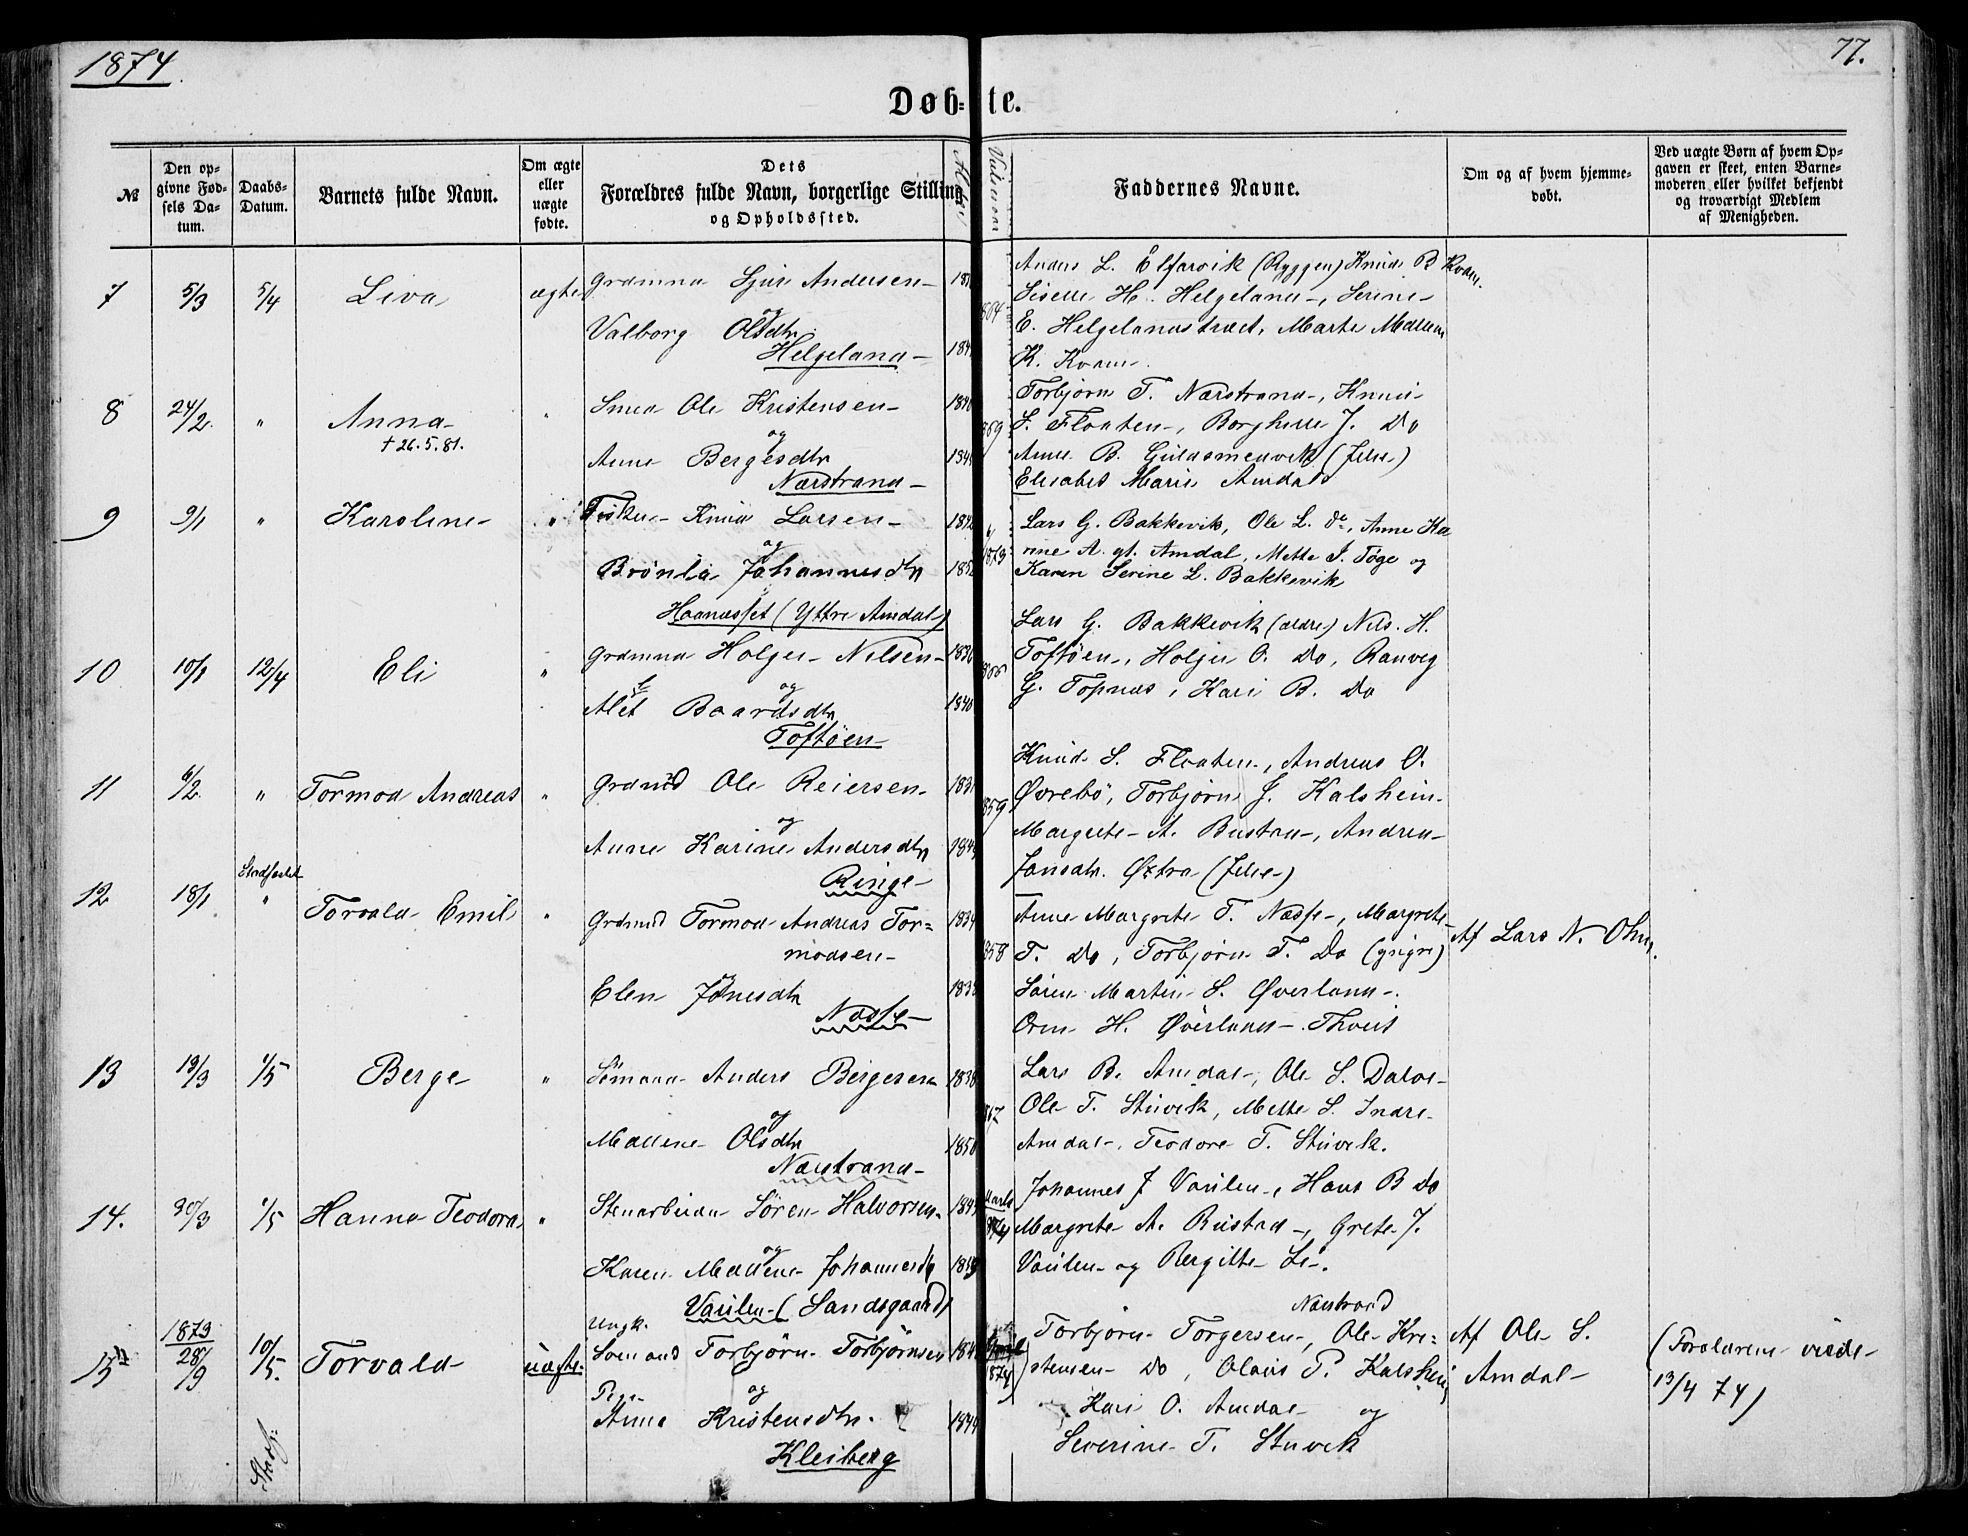 1874
77.
Døb= te.
№
Den op-
givne Fød-
sels Da-
tum.
Daabs-
Datum.
Barnets fulde Navn.
Om ægte
eller
uægte
fødte.
Dets
Forældres fulde Navn, borgerlige Stilling
og Opholdssted.
Faddernes Navne.
Om og af hvem hjemme-
døbt.
Ved uægte Børn af hvem Op-
gaven er skeet, enten Barne-
moderen eller hvilket bekjendt
og troværdigt Medlem
af Menigheden.
7 5/3 5/4 Liva ægte
Grdmnd Sjur Andersen
og
Valborg Olsdtr
Helgeland
Anders L. Elfarvik (Ryggen) Knud B Kvam.
Siselle H. Helgeland, Serine
E. Helgelandstræet, Marte Mallene
K. Kvam.
8 24/2 " Anna "
† 26.5.81.
Smed Ole Kristensen
og
Anne Bergesdtr
Nærstrand
Torbjørn T. Nærstrand, Knud
S. Floaten, Borghille J. Do
Anne B. Guldsmedvik (Jelse)
Elisabet Marie Amdal
9 9/1 " Karoline "
Fisker Knud Larsen
og
Brønla Johannesdtr 1852
Haanæsset (Yttre Amdal)
1873
Lars G. Bakkevik, Ole L. do, Anne Ka
rine A. gt. Amdal, Mette I. Tøge og
Karen Serine L. Bakkevik
10 10/1 12/4 Eli "
Grdmnd Holger Nilsen
og
Alet Baardsdtr
Toftøen
Lars G. Bakkevik (ældre) Nils H.
Toftøen, Holger O. Do, Ranveg
G. Topnæs, Kari B. Do
11 6/2 " Tormod Andreas "
Grdmnd Ole Reiersen
og
Anne Karine Andersdtr
Ringe
859
Knud S. Floaten, Andreas O.
Øvrebø, Torbjørn J. Kalsheim
Margrete A. Bustra, Andrea
Jansdtr. Øxtra (Jelse)
12 18/1 " Torvald Emil "
Grdmnd Tormod Andreas Tor= 1834
modsen
og
Elen Jonesdtr
Næsse
858
Anne Margrete T. Næsse, Margrete
T. do, Torbjørn T. Do (yngre)
Søren Martin S. Øverland
Orm H. Øverland Thveit
Af Lars N. Ohm.
13 13/3 1/5 Berge "
Sømand Anders Bergesen 1838
og
Mallene Olsdtr 1850
Nærstrand
Lars B. Amdal, Ole S. Dalve
Ole T. Stuvik, Mette S. Indre
Amdal, Teodore T. Stuvik.
14. 30/3 1/5 Hanna Teodora "
Stenarbeider Søren Halvorsen
og
Karen Mallene Johannesdtr
Vaulen (Sandsgaard)
Johannes J Vaulen, Hans B Do
Margrete A. Rustad, Grete J.
Vaulen og Bergitte Li.
15 1873 28/9 10/5. Torvald uægte
Ungk.
Svenand Torbjørn Torbjørnsen
og
Pige
Anne Kristensdtr.
Kleiberg
1874
Nærstrand
Torbjørn Torgersen, Ole Kri=
stensen Do, Olaus P. Kalsheim
Kari O. Amdal og
Severine T. Stuvik
Af Ole S.
Amdal
(Forældrene viede
13/4 74)